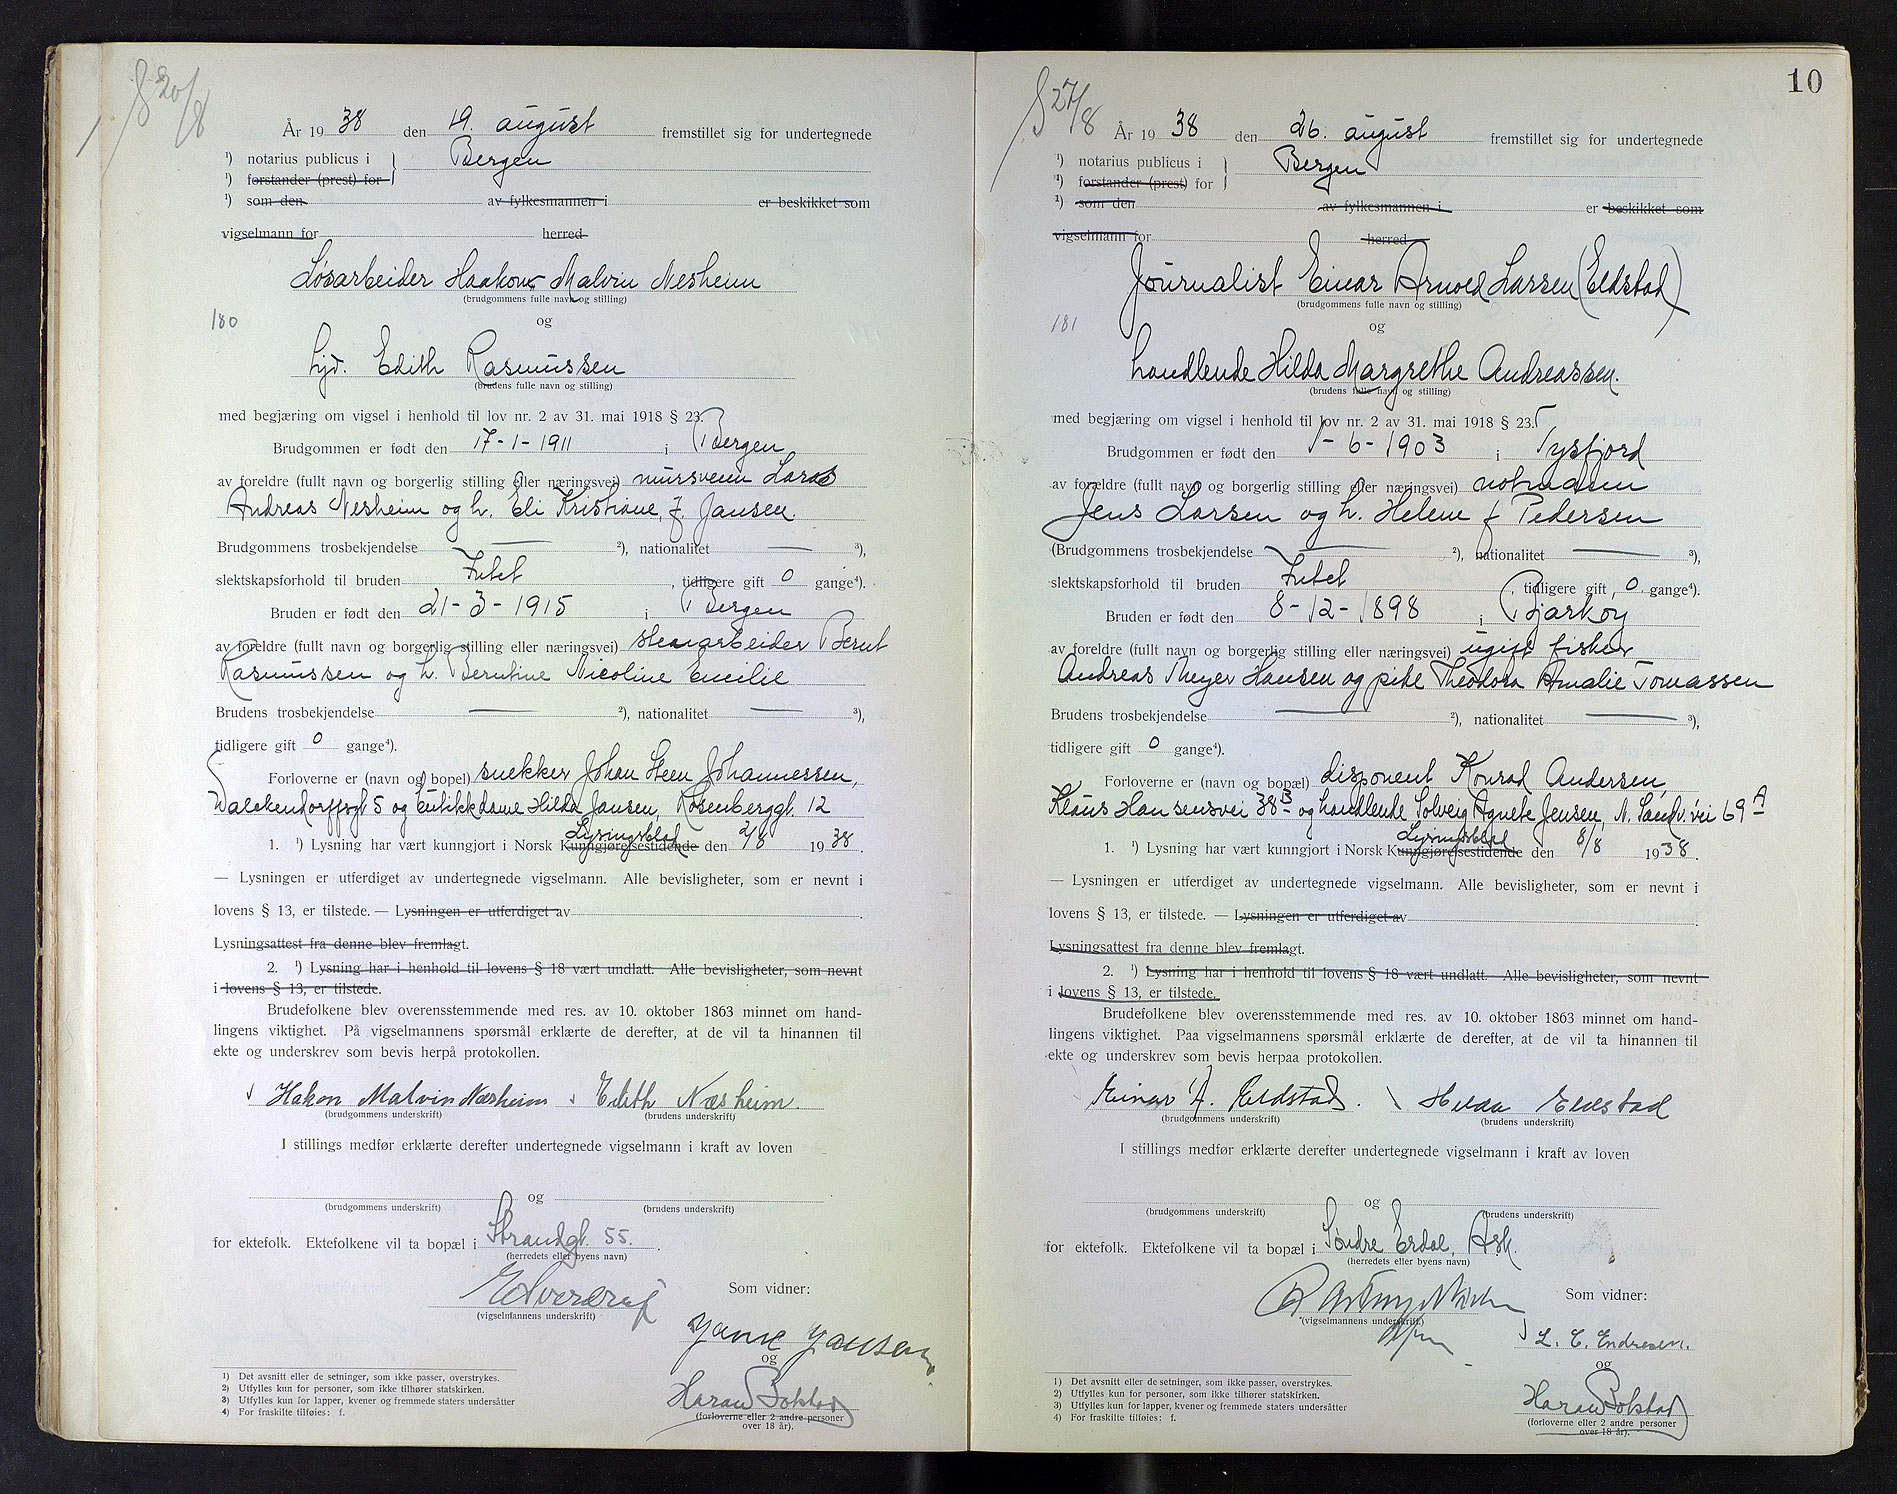 § 20/8
År 1938 den 19. august fremstillet sig for undertegnede
¹) notarius publicus i } Bergen
¹) forstander (prest) for
¹) som den av fylkesmannen i er beskikket som
vigselmann for herred
Løsarbeider Haakon Malvin Nesheim
(brudgommens fulle navn og stilling)
180
og
hjv. Edith Rasmussen
(brudens fulle navn og stilling)
med begjæring om vigsel i henhold til lov nr. 2 av 31. mai 1918 § 23.
Brudgommen er født den 17-1-1911 i Bergen
av foreldre (fullt navn og borgerlig stilling eller næringsvei) mursvenn Lars
Andreas Nesheim og h. Eli Kristiane, f. Jansen.
Brudgommens trosbekjendelse — ²), nationalitet — ³),
slektskapsforhold til bruden Intet, tidligere gift 0 gange⁴).
Bruden er født den 21-3-1915 i Bergen
av foreldre (fullt navn og borgerlig stilling eller næringsvei) stenarbeider Bernt
Rasmussen og h. Berntine Nicoline Emilie
Brudens trosbekjendelse — ²), nationalitet — ³),
tidligere gift 0 gange⁴).
Forloverne er (navn og bopel) snekker Johan Steen Johannessen,
Walckendorffsgt 5 og butikkdame Hilda Jansen, Rosenberggt. 12
Lysingsblad
1. ¹) Lysning har vært kunngjort i Norsk Kunngjørelsestidende den 2/8 1938.
— Lysningen er utferdiget av undertegnede vigselmann. Alle bevisligheter, som er nevnt i
lovens § 13, er tilstede. — Lysningen er utferdiget av .
Lysningsattest fra denne blev fremlagt.
2. ¹) Lysning har i henhold til lovens § 18 vært undlatt. Alle bevisligheter, som nevnt
i lovens § 13, er tilstede.
Brudefolkene blev overensstemmende med res. av 10. oktober 1863 minnet om hand-
lingens viktighet. På vigselmannens spørsmål erklærte de derefter, at de vil ta hinannen til
ekte og underskrev som bevis herpå protokollen.
Hakon Malvin Næsheim Edith Næsheim.
(brudgommens underskrift) (brudens underskrift)
I stillings medfør erklærte derefter undertegnede vigselmann i kraft av loven
og
(brudgommens underskrift) (brudens underskrift)
for ektefolk. Ektefolkene vil ta bopæl i Strandgt. 55.
(herredets eller byens navn)
Som vidner:
(vigselmannens underskrift)
Jansen
og
(forloverne eller 2 andre personer
over 18 år).
1) Det avsnitt eller de setninger, som ikke passer, overstrykes.
2) Utfylles kun for personer, som ikke tilhører statskirken.
3) Utfylles kun for lapper, kvener og fremmede staters undersåtter
4) For fraskilte tilføies: f.
10
§ 27/8
År 1938 den 26. august fremstillet sig for undertegnede
¹) notarius publicus i } Bergen
¹) forstander (prest) for
¹) som den av fylkesmannen i er beskikket som
vigselmann for herred
Journalist Einar Arnold Larsen (Eldstad)
(brudgommens fulle navn og stilling)
181
og
handlende Hilda Margrethe Andreassen.
(brudens fulle navn og stilling)
med begjæring om vigsel i henhold til lov nr. 2 av 31. mai 1918 § 23.
Brudgommen er født den 1-6-1903 i Tysfjord
av foreldre (fullt navn og borgerlig stilling eller næringsvei) notmann
Jens Larsen og h. Helene f Pedersen
(Brudgommens trosbekjendelse — ²), nationalitet — ³),
slektskapsforhold til bruden Intet, tidligere gift 0 gange⁴).
Bruden er født den 8-12-1898 i Bjarkøy
av foreldre (fullt navn og borgerlig stilling eller næringsvei) ugift fisker
Andreas Meyer Hansen og pike Theodora Amalie Tomassen
Brudens trosbekjendelse — ²), nationalitet — ³),
tidligere gift 0 gange⁴).
Forloverne er (navn og bopæl) disponent Konrad Andersen,
Klaus Hansensvei 38B og handlende Solveig Agnete Jensen, N. Sandv. vei 69A
Lysingsblad
1. ¹) Lysning har vært kunngjort i Norsk Kunngjørelsestidende den 8/8 1938.
— Lysningen er utferdiget av undertegnede vigselmann. Alle bevisligheter, som er nevnt i
lovens § 13, er tilstede. — Lysningen er utferdiget av .
Lysningsattest fra denne blev fremlagt.
2. ¹) Lysning har i henhold til lovens § 18 vært undlatt. Alle bevisligheter, som nevnt
i lovens § 13, er tilstede.
Brudefolkene blev overensstemmende med res. av 10. oktober 1863 minnet om hand-
lingens viktighet. Paa vigselmannens spørsmål erklærte de derefter, at de vil ta hinannen til
ekte og underskrev som bevis herpaa protokollen.
Einar A. Eldstad. Hilda Eldstad
(brudgommens underskrift) (brudens underskrift)
I stillings medfør erklærte derefter undertegnede vigselmann i kraft av loven
og
(brudgommens underskrift) (brudens underskrift)
for ektefolk. Ektefolkene vil ta bopæl i Søndre Erdal, Ask.
(herredets eller byens navn)
Som vidner:
(vigselmannens underskrift.)
L. C. Endresen.
og
(forloverne eller 2 andre personer
over 18 år).
1) Det avsnitt eller de setninger, som ikke passer, overstrykes.
2) Utfylles kun for personer, som ikke tilhører statskirken.
3) Utfylles kun for lapper, kvener og fremmede staters undersåtter
4) For fraskilte tilføies: f.